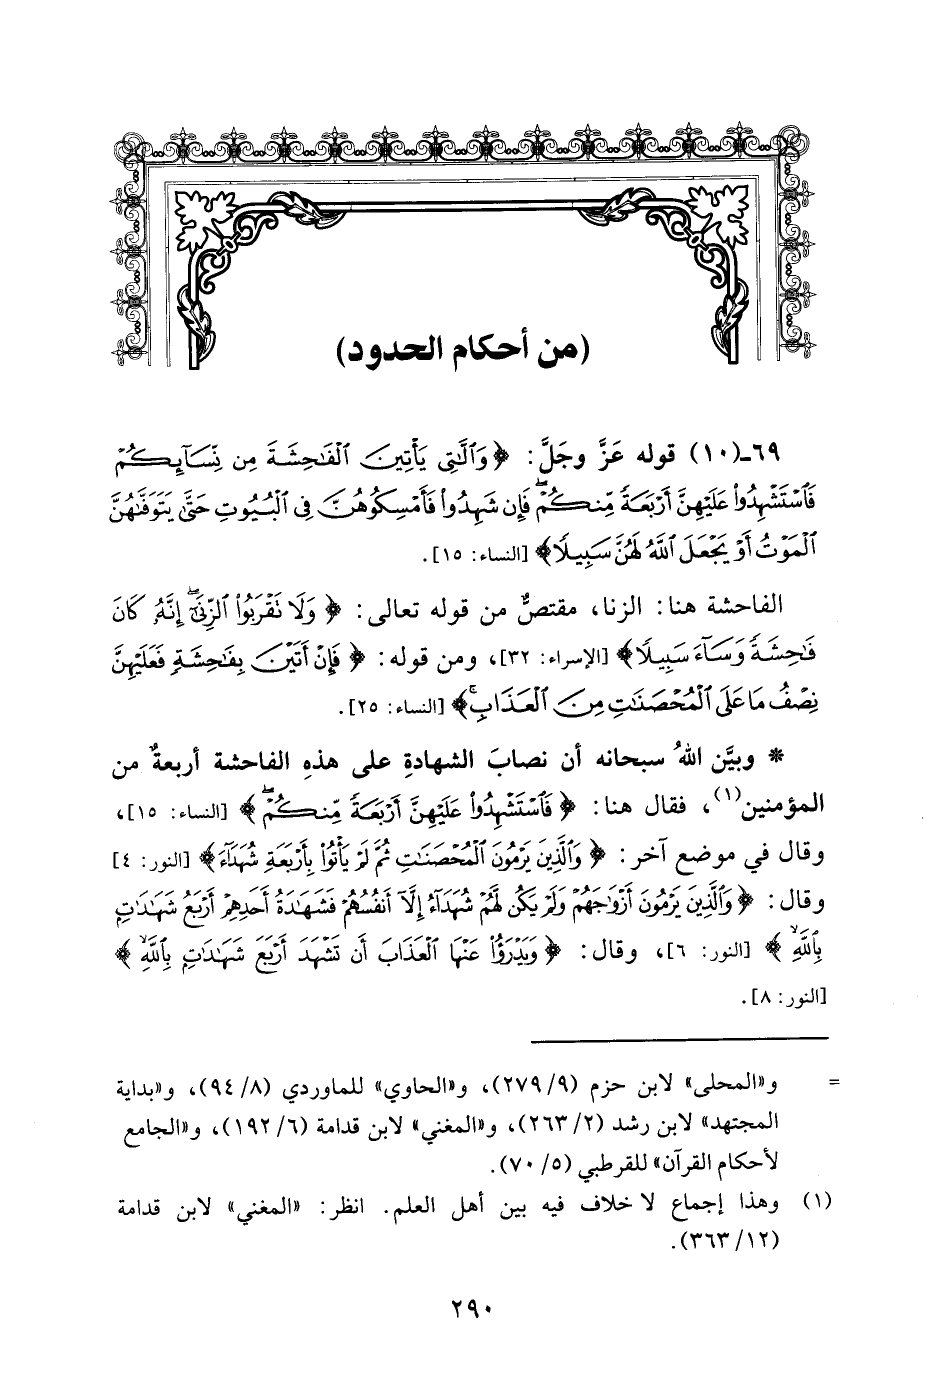 (من أحكام الحدود)
٦٩-(١٠) قوله عَزَّ وجَلَّ: ﴿ وَٱلَّٰتِى يَأْتِينَ ٱلْفَٰحِشَةَ مِن نِّسَآئِكُمْ
فَٱسْتَشْهِدُوا۟ عَلَيْهِنَّ أَرْبَعَةً مِّنكُمْ ۖ فَإِن شَهِدُوا۟ فَأَمْسِكُوهُنَّ فِى ٱلْبُيُوتِ حَتَّىٰ يَتَوَفَّىٰهُنَّ
ٱلْمَوْتُ أَوْ يَجْعَلَ ٱللَّهُ لَهُنَّ سَبِيلًا﴾ [النساء: ١٥].
الفاحشة هنا: الزنا، مقتصٌّ من قوله تعالى: ﴿ وَلَا تَقْرَبُوا۟ ٱلزِّنَىٰٓ ۖ إِنَّهُۥ كَانَ
فَٰحِشَةً وَسَآءَ سَبِيلًا﴾ [الإسراء: ٣٢]، ومن قوله: ﴿ فَإِنْ أَتَيْنَ بِفَٰحِشَةٍ فَعَلَيْهِنَّ
نِصْفُ مَا عَلَى ٱلْمُحْصَنَٰتِ مِنَ ٱلْعَذَابِ ۚ﴾ [النساء: ٢٥].
* وبيَّن اللهُ سبحانه أن نصابَ الشهادةِ على هذهِ الفاحشة أربعةٌ من
المؤمنين(١)، فقال هنا: ﴿ فَٱسْتَشْهِدُوا۟ عَلَيْهِنَّ أَرْبَعَةً مِّنكُمْ ۖ ﴾ [النساء: ١٥]،
وقال في موضع آخر: ﴿ وَٱلَّذِينَ يَرْمُونَ ٱلْمُحْصَنَٰتِ ثُمَّ لَمْ يَأْتُوا۟ بِأَرْبَعَةِ شُهَدَآءَ﴾ [النور: ٤]
وقال: ﴿ وَٱلَّذِينَ يَرْمُونَ أَزْوَٰجَهُمْ وَلَمْ يَكُن لَّهُمْ شُهَدَآءُ إِلَّآ أَنفُسُهُمْ فَشَهَٰدَةُ أَحَدِهِمْ أَرْبَعُ شَهَٰدَٰتٍۭ
بِٱللَّهِ ۙ ﴾ [النور: ٦]، وقال: ﴿ وَيَدْرَؤُا۟ عَنْهَا ٱلْعَذَابَ أَن تَشْهَدَ أَرْبَعَ شَهَٰدَٰتٍۭ بِٱللَّهِ ۙ ﴾
[النور: ٨].
= و«المحلى» لابن حزم (٩/ ٢٧٩)، و«الحاوي» للماوردي (٨/ ٩٤)، و«بداية
المجتهد» لابن رشد (٢/ ٢٦٣)، و«المغني» لابن قدامة (٦/ ١٩٢)، و«الجامع
لأحكام القرآن» للقرطبي (٥/ ٧٠).
(١) وهذا إجماع لا خلاف فيه بين أهل العلم. انظر: «المغني» لابن قدامة
(١٢/ ٣٦٣).
٢٩٠